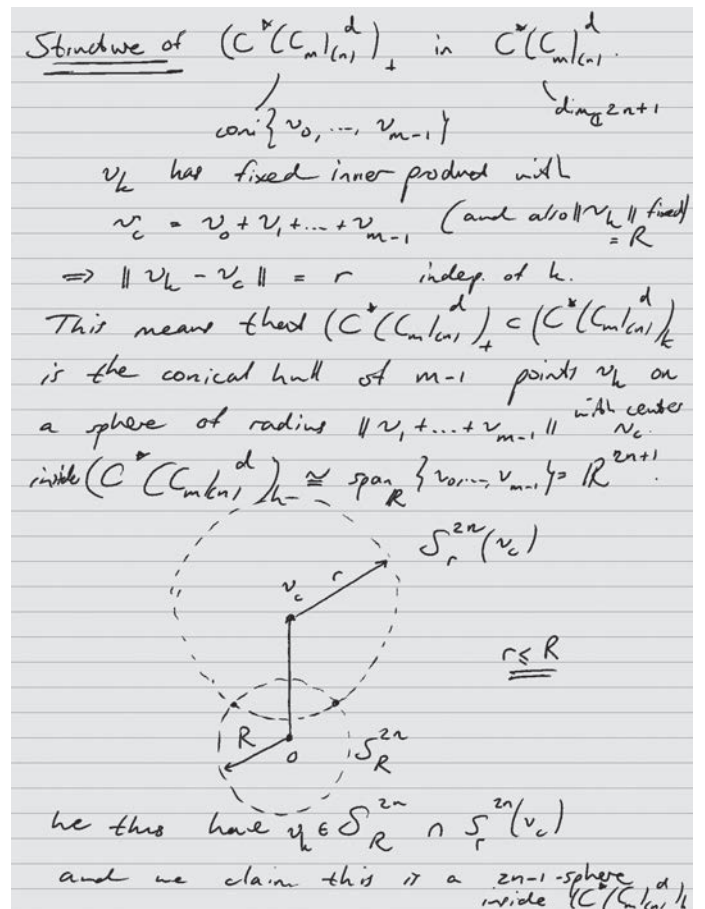 Structure of (C*(C_m)|_(n)^d)_+ in C*(C_m)|_(n)^d.
coni{v_0, ..., v_{m-1}}
dim_ℂ 2n+1
v_k has fixed inner product with
v_c = v_0 + v_1 + ... + v_{m-1} (and also ‖v_k‖ fixed)
= R
⟹ ‖v_k - v_c‖ = r indep. of k.
This means that (C*(C_m)|_(n)^d)_+ ⊂ (C*(C_m)|_(n)^d)_h
is the conical hull of m-1 points v_k on
a sphere of radius ‖v_1 + ... + v_{m-1}‖ with center
v_c
inside (C*(C_m)|_(n)^d)_h ≅ span_ℝ {v_0, ..., v_{m-1}} = ℝ^{2n+1}.
S_r^{2n}(v_c)
v_c r
r ≤ R
R
0
S_R^{2n}
We thus have v_k ∈ S_R^{2n} ∩ S_r^{2n}(v_c)
and we claim this is a 2n-1-sphere
inside (C*(C_m)|_(n)^d)_h